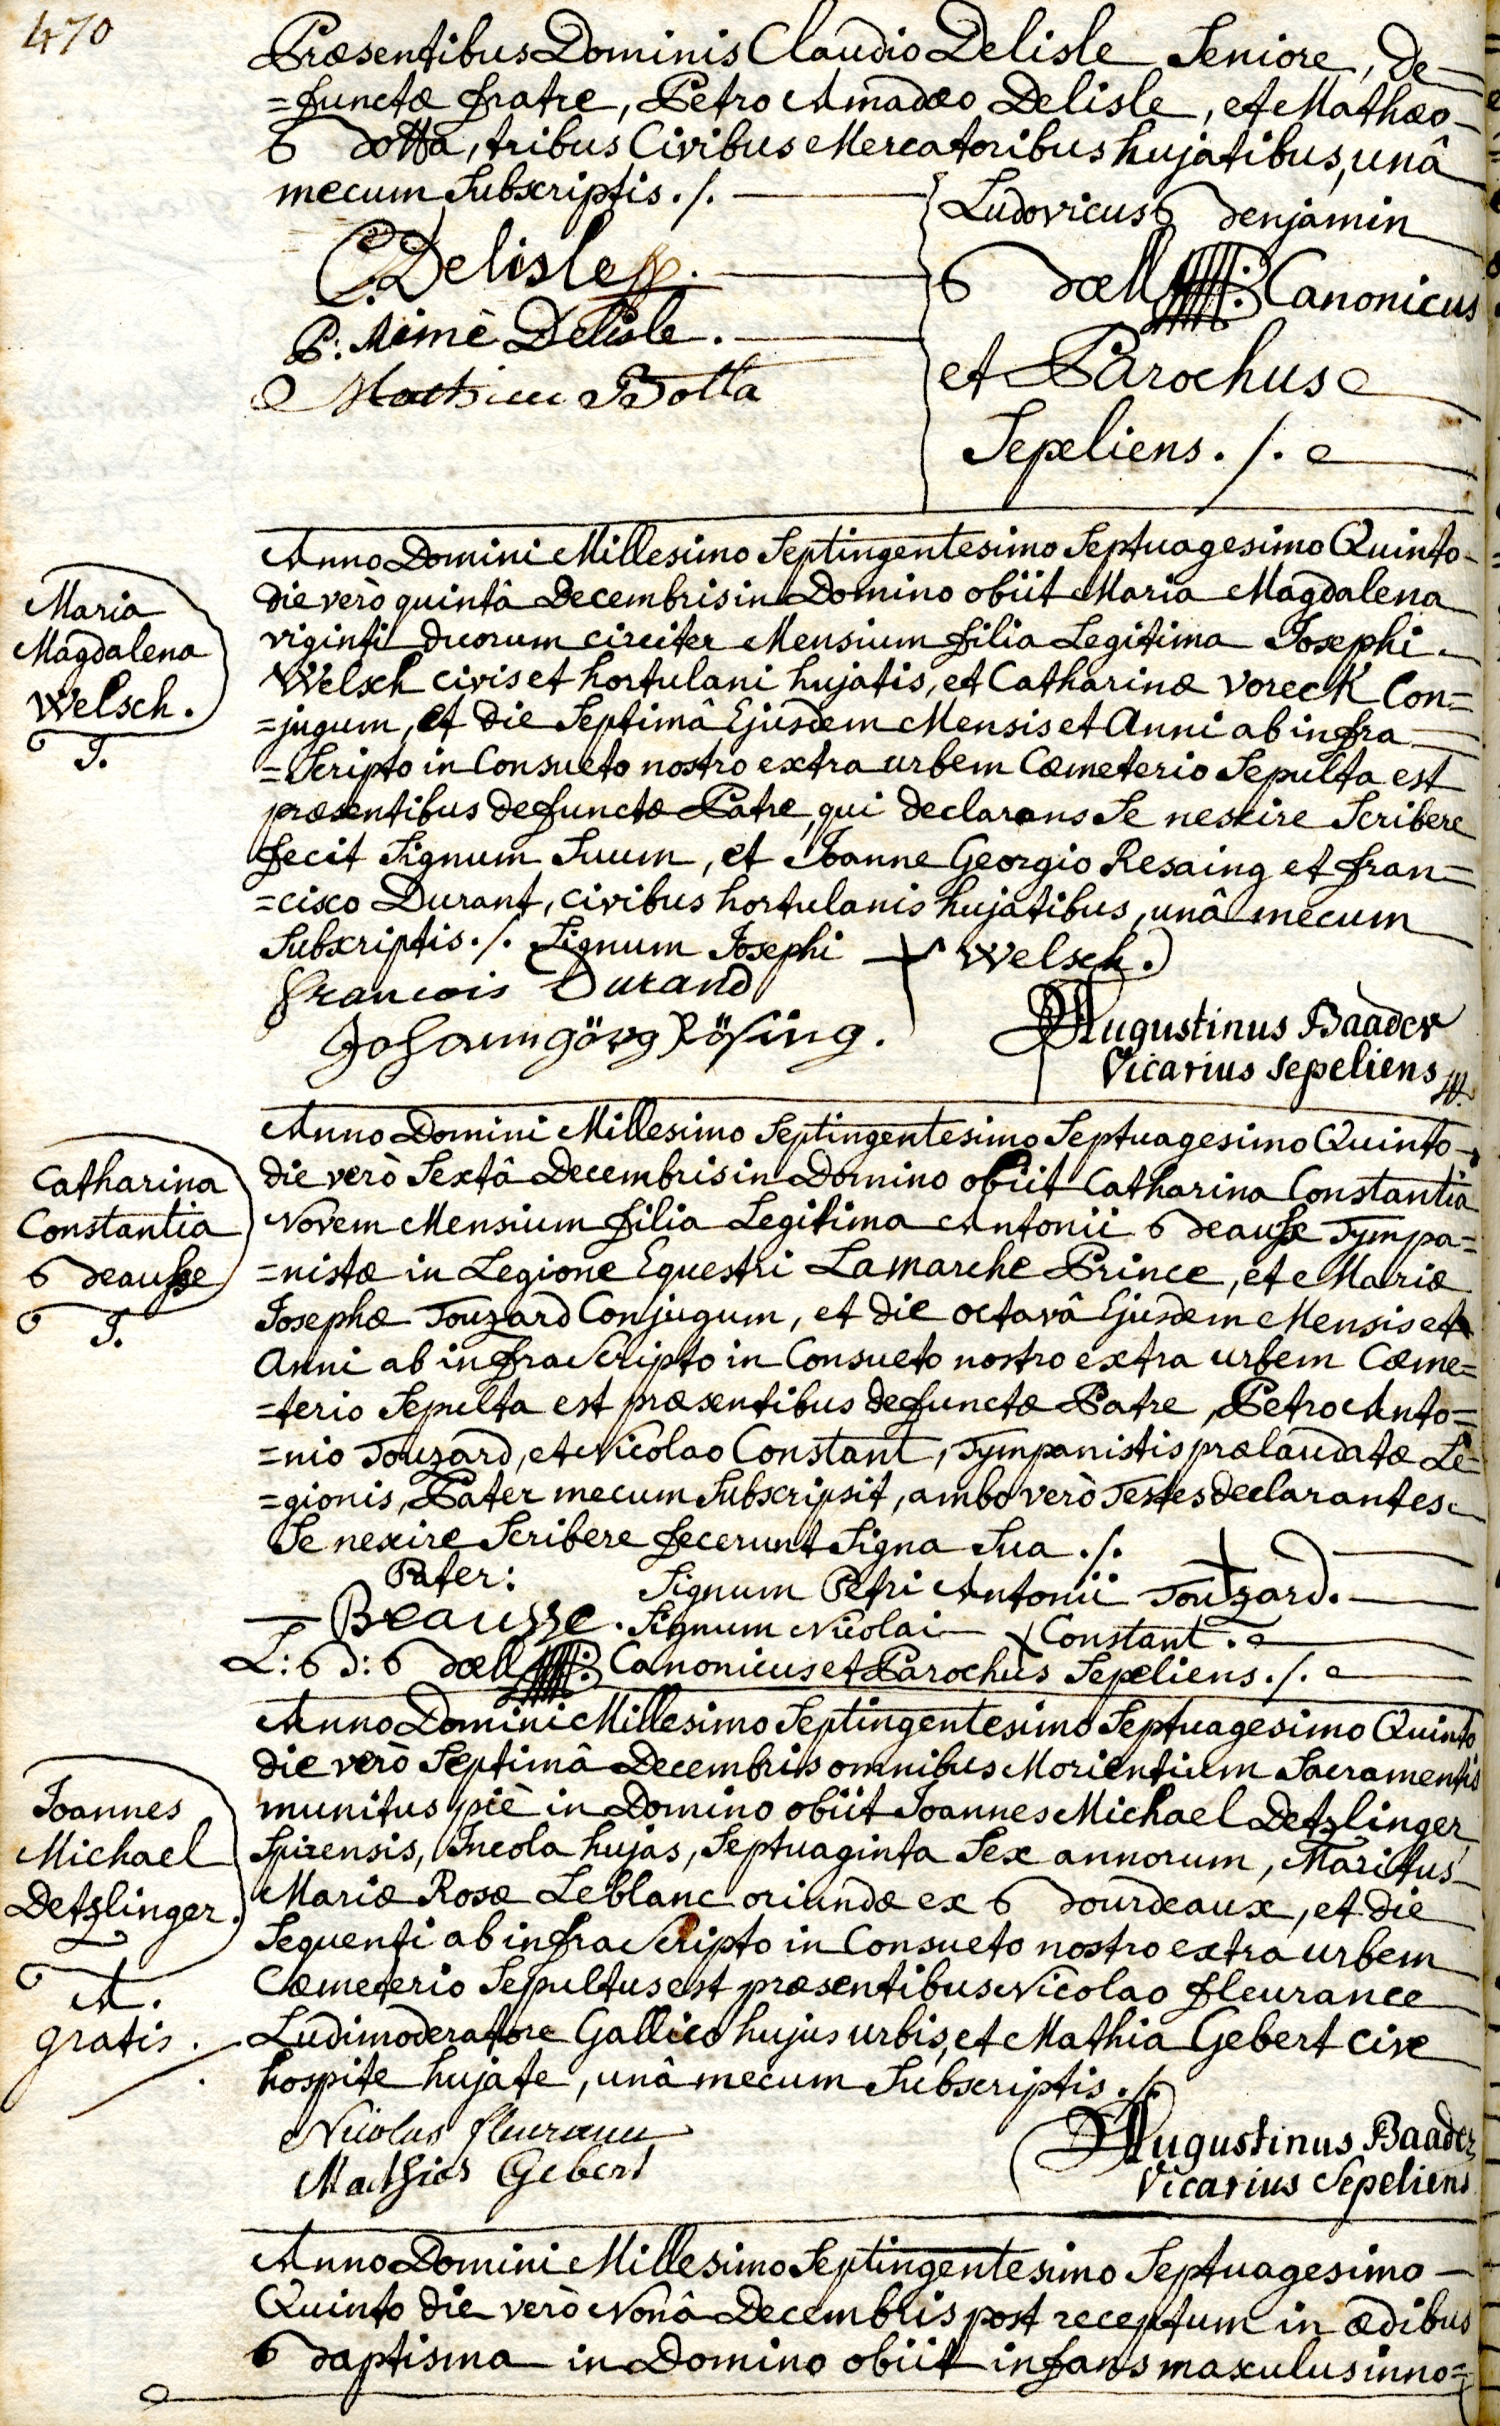 470
Præsentibus Dominis Claudio Delisle Seniore, de-
=functæ fratre, Petro Amadæo Delisle, et Mathæo
Botta, tribus Civibus Mercatoribus hujatibus, unâ
mecum Subscriptis ./.
C. Delisle
P: Aimé Delisle.
Mathieu Botta
Ludovicus Benjamin
Bœll Canonicus
et Parochus
Sepeliens ./.
Maria
Magdalena
Welsch.
J.
Anno Domini Millesimo Septingentesimo Septuagesimo Quinto
die verò quintâ Decembris in Domino obiit Maria Magdalena
viginti duorum circiter Mensium filia Legitima Josephi
Welsch civis et hortulani hujatis, et Catharinæ Voreck Con=
=jugum, et die Septimâ Ejusdem Mensis et Anni ab infra
=Scripto in Consueto nostro extra urbem Cœmeterio Sepulta est
præsentibus defunctæ Patre, qui declarans Se nescire Scribere
fecit Signum Suum, et Joanne Georgio Resaing et fran=
=cisco Durant, civibus hortulanis hujatibus, unâ mecum
Subscriptis ./. Signum Josephi + Welsch.
francois Durand
Johann görg Rösing.
Augustinus Baader
Vicarius sepeliens
Catharina
Constantia
Beausse
J.
Anno Domini Millesimo Septingentesimo Septuagesimo Quinto
die verò Sextâ Decembris in Domino obiit Catharina Constantia
Novem Mensium filia Legitima Antonii Beausse Tympa=
=nistæ in Legione Equestri Lamarche Prince, et Mariæ
Josephæ Touzard Conjugum, et die octavâ Ejusdem Mensis et
Anni ab infra Scripto in Consueto nostro extra urbem Cœme=
=terio Sepulta est præsentibus defunctæ Patre, Petro Anto=
=nio Touzard, et Nicolao Constant, Tympanistis prælaudatæ Le=
=gionis, Pater mecum Subscripsit, ambo verò Testes declarantes
Se nescire Scribere fecerunt Signa Sua ./.
Pater:
Beausse. Signum Petri Antonii + Touzard.
Signum Nicolai + Constant.
L: B: Bœll Canonicus et Parochus Sepeliens ./.
Joannes
Michael
Detzlinger.
A.
gratis.
Anno Domini Millesimo Septingentesimo Septuagesimo Quinto
die verò Septimâ Decembris omnibus Morientium Sacramentis
munitus piè in Domino obiit Joannes Michael Detzlinger
Spirensis, Incola hujas, Septuaginta Sex annorum, Maritus
Mariæ Rosæ Leblanc oriundæ ex Bourdeaux, et die
Sequenti ab infra Scripto in Consueto nostro extra urbem
Cœmeterio Sepultus est præsentibus Nicolao fleurance
Ludimoderatore Gallico hujus urbis, et Mathia Gebert cive
hospite hujate, unâ mecum Subscriptis ./.
Nicolas fleurance
Mathias Gebert
Augustinus Baader
Vicarius Sepeliens
Anno Domini Millesimo Septingentesimo Septuagesimo
Quinto die verò Nonâ Decembris post receptum in ædibus
Baptisma in Domino obiit infans masculus inno=